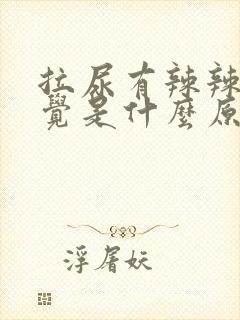 拉尿有辣辣
覺是什麼原
浮屠妖